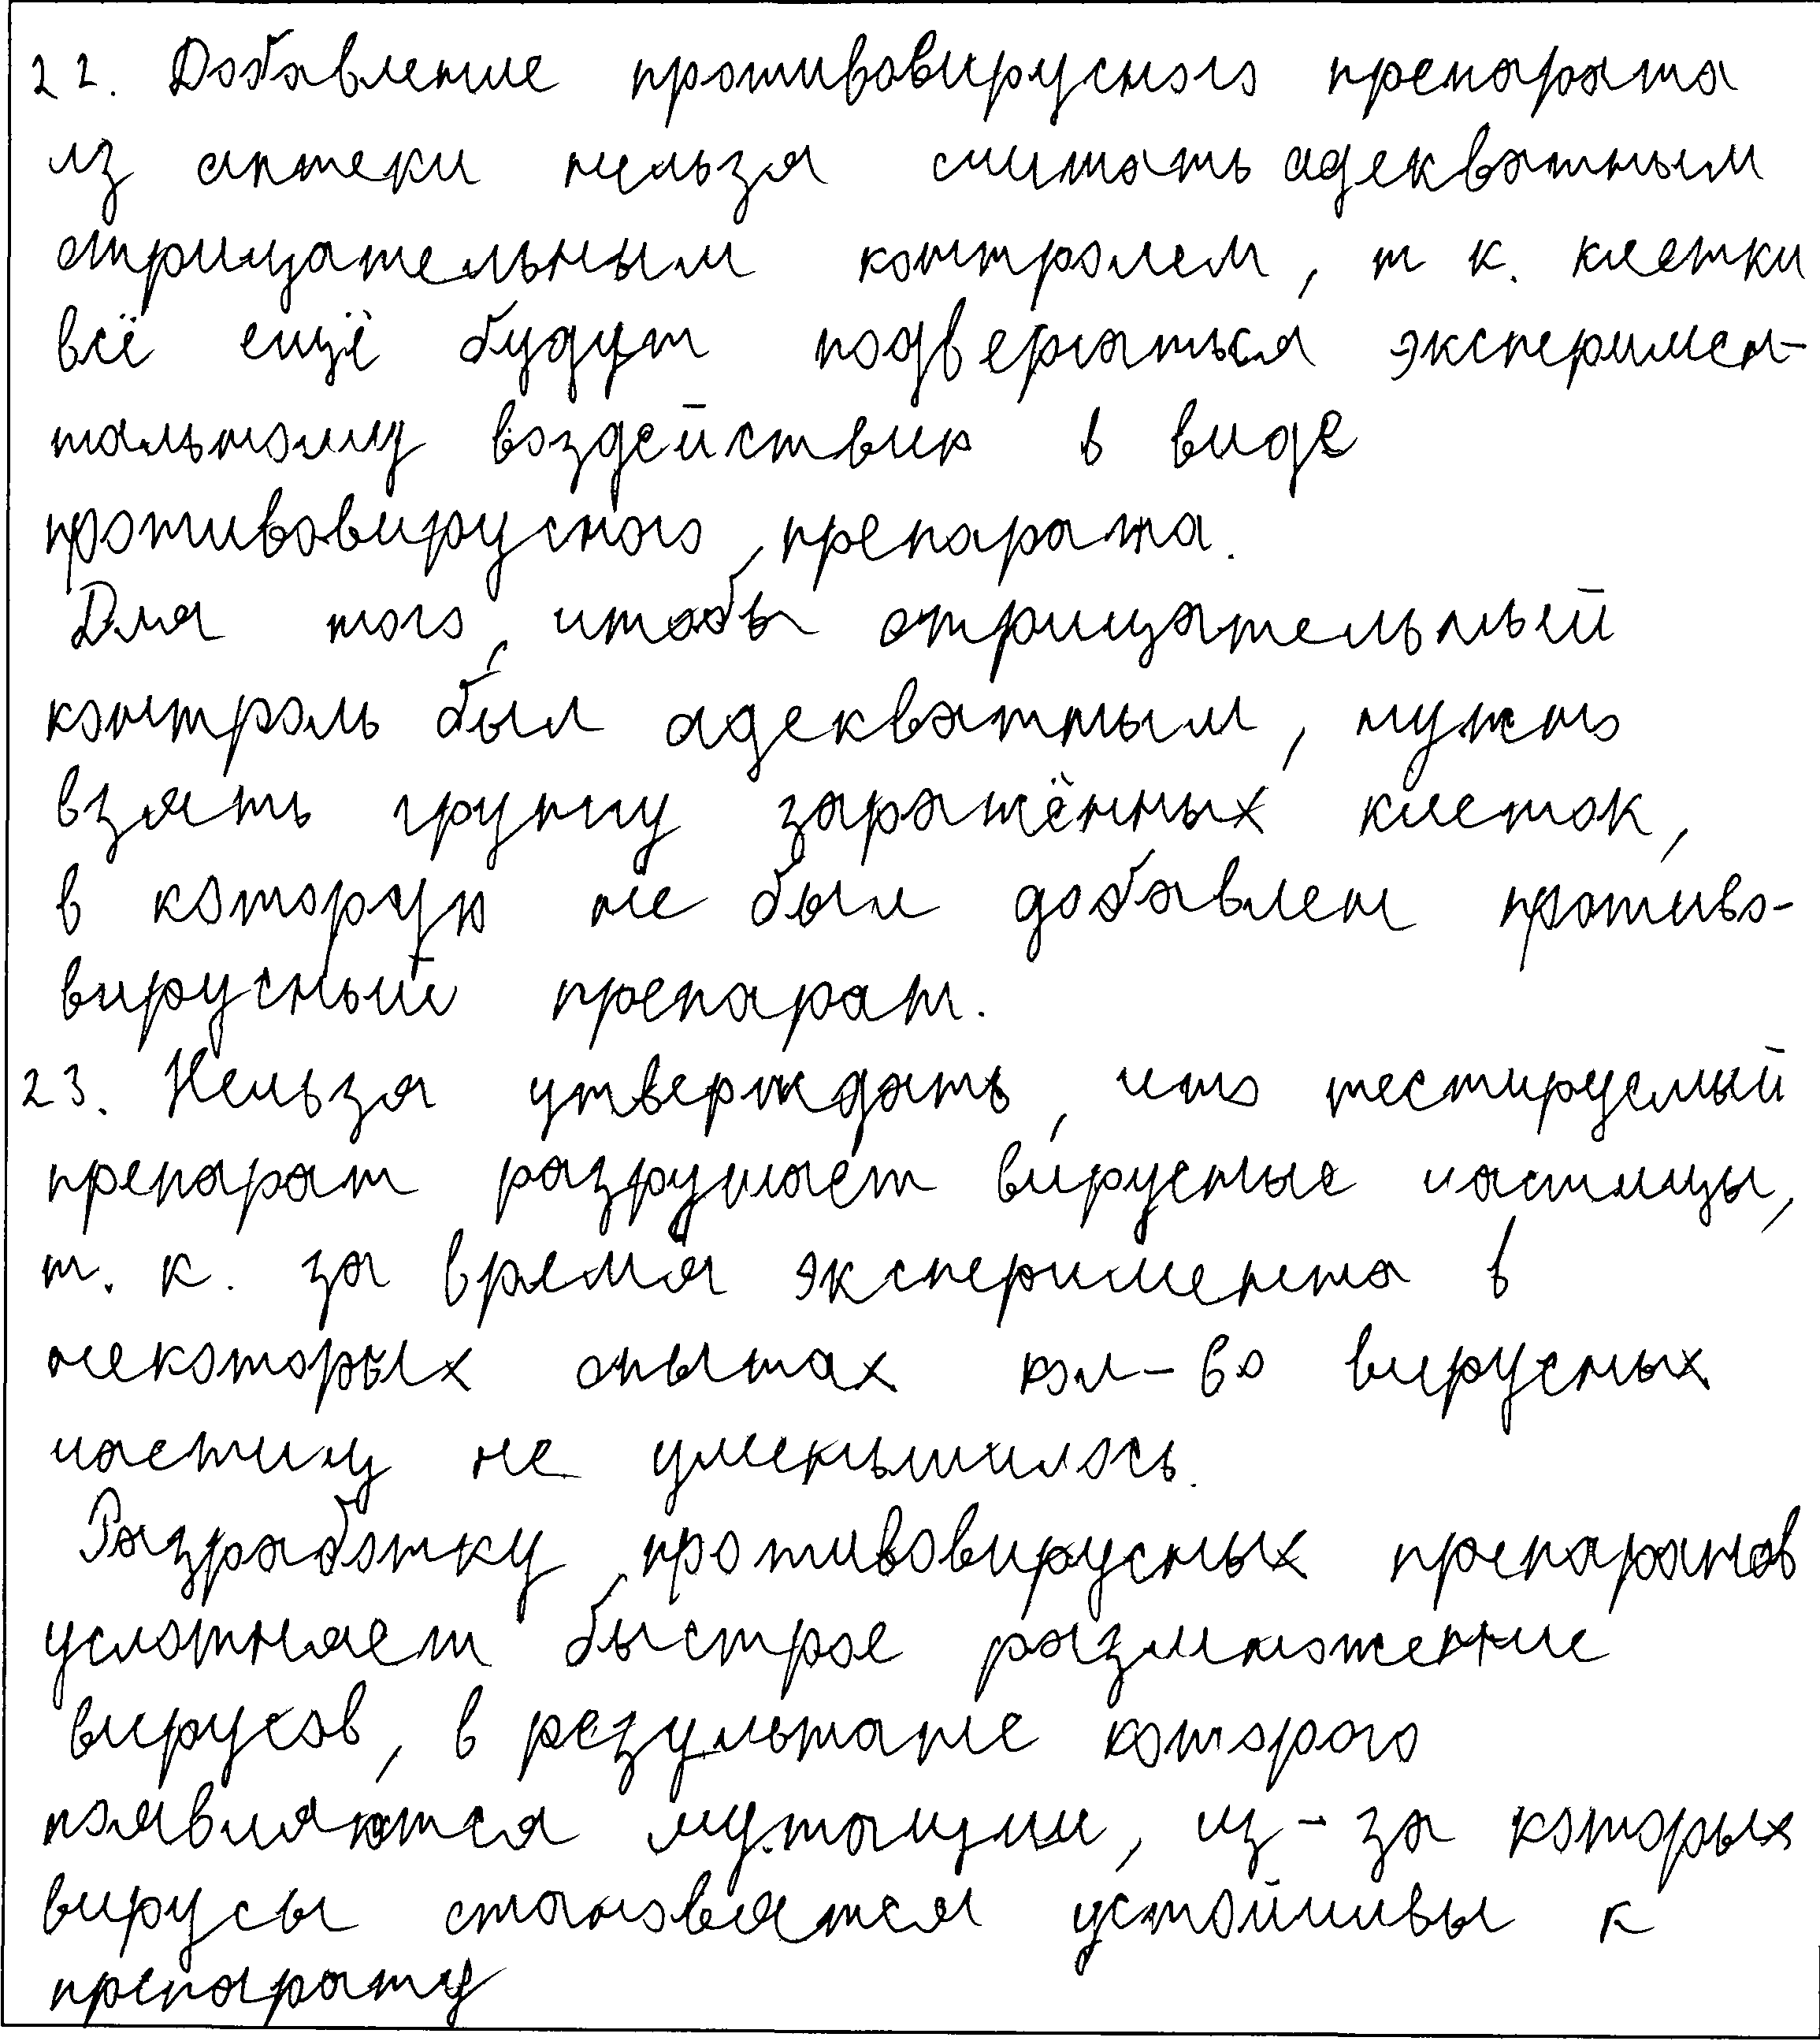 22. Добавление противовирусного препарата
из аптеки нельзя считать адекватным
отрицательным контролем, т к. клетки
всё ещё будут подвергаться эксперимен-
тальному воздействию в виде
противовирусного препарата.
Для того, чтобы отрицательный
контроль был адекватным, нужно
взять группу заражённых клеток,
в которую не был добавлен противо-
вирусный препарат.
23. Нельзя утверждать, что тестируемый
препарат разрушает вирусные частицы,
т. к. за время эксперимента в
некоторых опытах кол-во вирусных
частиц не уменьшилось.
Разработку противовирусных препаратов
усложняет быстрое размножение
вирусов, в результате которого
появляются мутации, из-за которых
вирусы становятся устойчивы к
препарату